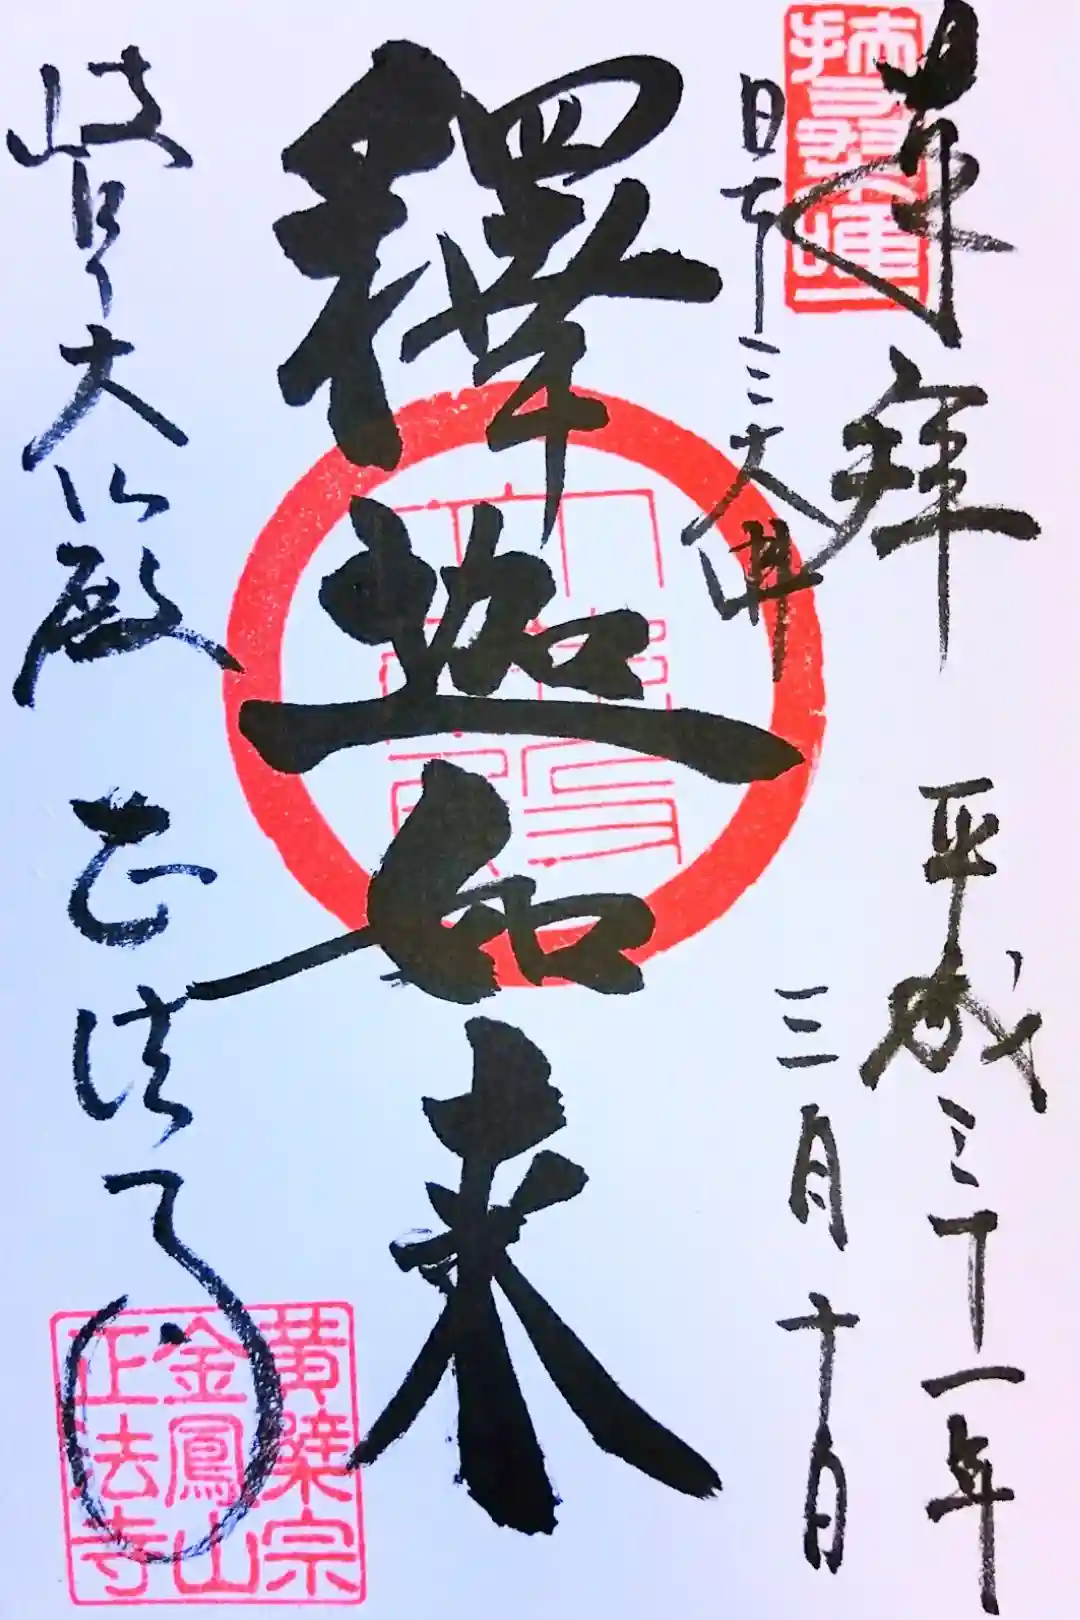 奉拝
平成三十一年
三月十日
日本三大佛
釋迦如来
岐阜大仏殿 正法寺
黄檗宗
金鳳山
正法寺